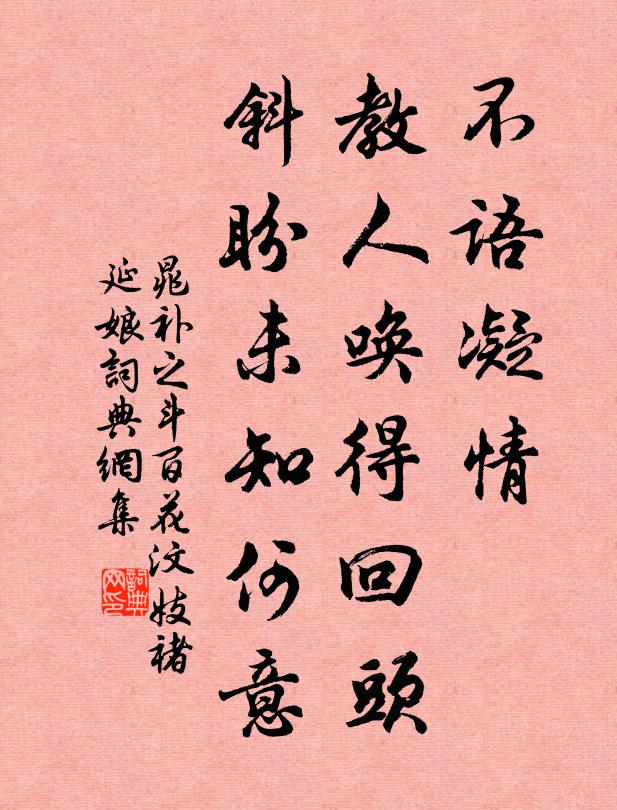 不语凝情
教人唤得回頭
斜盼未知何意
晁补之斗百花汶妓褚
延娘詞典網集
詞典
网印